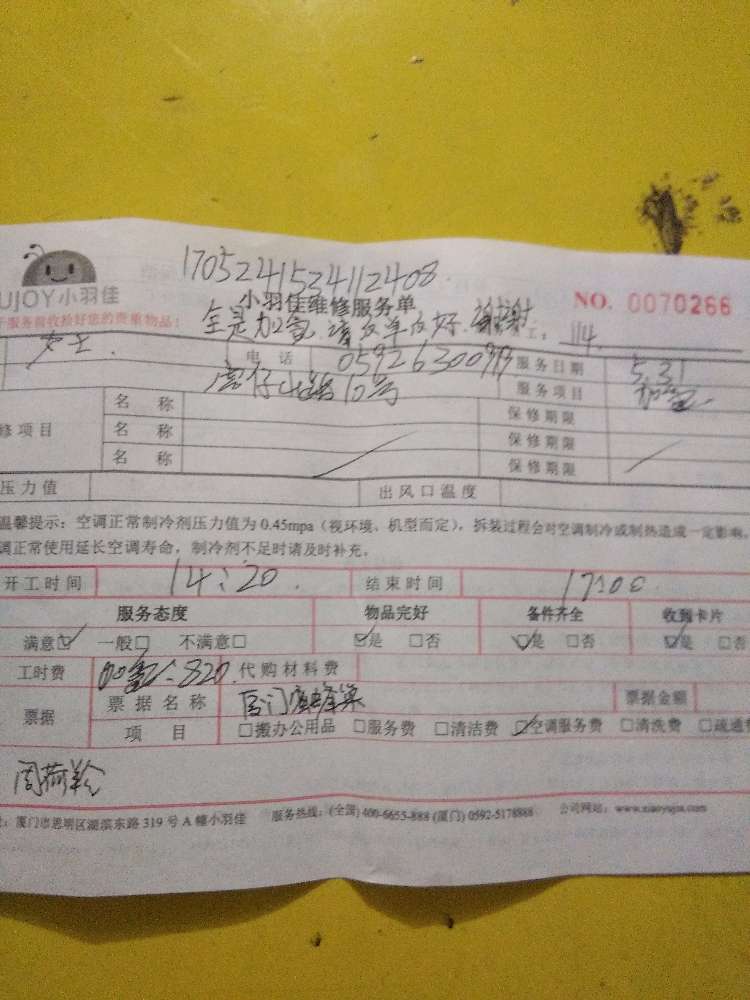 1705241534112408
UJOY小羽佳 小羽佳维修服务单 NO. 0070266
服务前收拾好您的贵重物品： 全是加氨 请反单 好 谢谢 工： 114
女士 电话 05926300 服务日期 5.31
仔 路10号 服务项目 加
修项目 名称 保修期限
名称 保修期限
名称 保修期限
压力值 出风口温度
温馨提示：空调正常制冷剂压力值为0.45mpa（视环境、机型而定），拆装过程会对空调制冷或制热造成一定影响。
调正常使用延长空调寿命，制冷剂不足时请及时补充。
开工时间 14:20 结束时间 17:00
服务态度 物品完好 备件齐全 收到卡片
满意☑ 一般□ 不满意□ ☑是 □否 ☑是 □否 ☑是 □否
工时费 820 代购材料费
票据 票据名称 厦门蜜蜂巢 票据金额
项目 □搬办公用品 □服务费 □清洁费 ☑空调服务费 □清洗费 □疏通费
周荷
厦门市思明区湖滨东路 319 号 A 幢小羽佳 服务热线：(全国) 400-6655-888 (厦门) 0592-5178888 公司网站：www.xiaoyujia.com